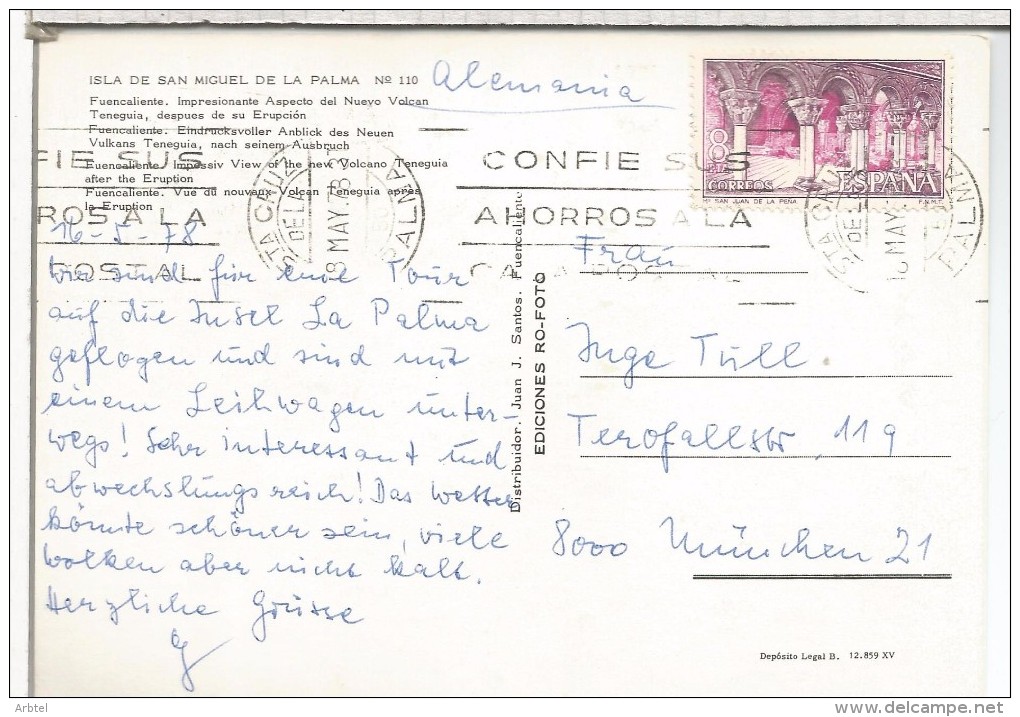 ISLA DE SAN MIGUEL DE LA PALMA Nº 110
Fuencaliente. Impresionante Aspecto del Nuevo Volcan
Teneguia, despues de su Erupción
Fuencaliente. Eindrucksvoller Anblick des Neuen
Vulkans Teneguia, nach seinem Ausbruch
Fuencaliente. Impessiv View of the new Volcano Teneguia
after the Eruption
Fuencaliente. Vue du nouvaux Volcan Teneguia après
la Eruption
Alemania
8
PTA
CORREOS
ESPAÑA
Mº SAN JUAN DE LA PEÑA
F.N.M.T.
FIE SUS
ROS A LA
POSTAL
STA CRUZ
DE LA
8 MAY 78
PALMA
CONFIE SUS
AHORROS A LA
STA CRUZ
DE LA
MAY
PALMA
16-5-78
Wir sind für eine Tour
auf die Insel La Palma
geflogen und sind mit
einem Leihwagen unter-
wegs! Sehr interessant und
abwechslungsreich! Das Wetter
könnte schöner sein, viele
Wolken aber nicht kalt.
Herzliche Grüsse
Distribuidor. Juan J. Santos. Fuencaliente
EDICIONES RO-FOTO
Frau
Inge Tüll.
Terofallstr 119
8000 München 21
Depósito Legal B. 12.859 XV
Arbtel
delcampe.net